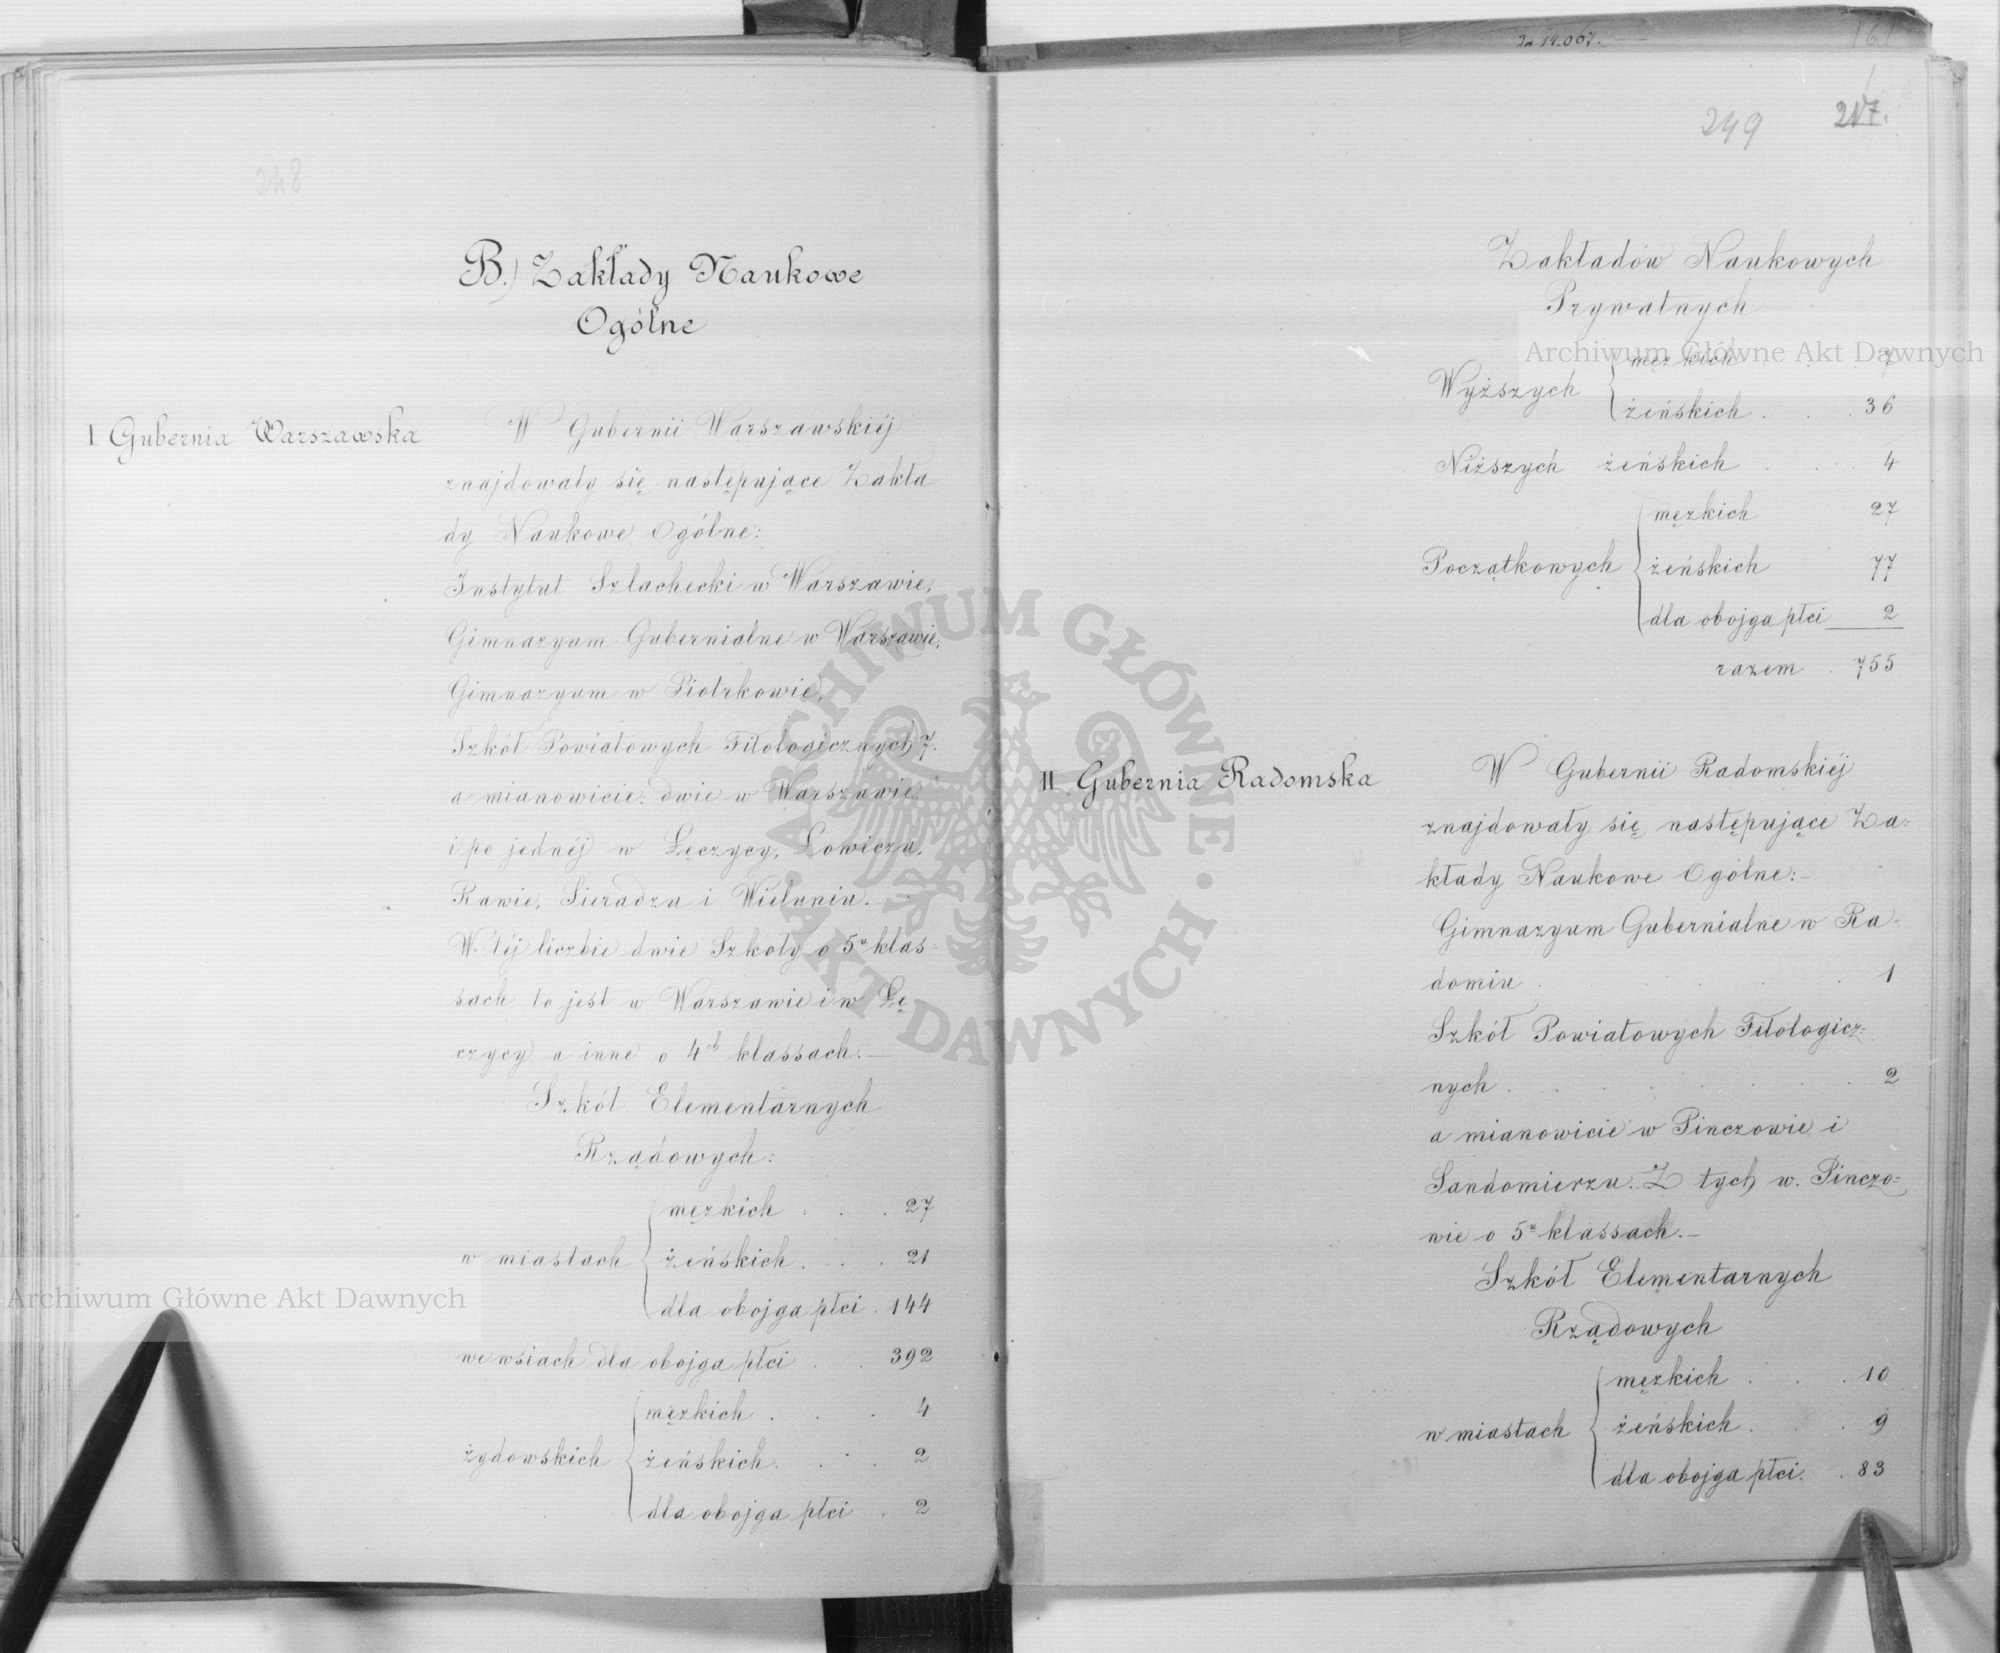 248
B.) Zakłady Naukowe
Ogólne
I Gubernia Warszawska
W Gubernii Warszawskiéj
znajdowały się następujące Zakła-
dy Naukowe Ogólne:
Instytut Szlachecki w Warszawie,
Gimnazyum Gubernialne w Warszawie,
Gimnazyum w Piotrkowie,
Szkół Powiatowych Filologicznych 7.
a mianowicie: dwie w Warszawie
i po jednéj w Łęczycy, Łowiczu,
Rawie, Sieradzu i Wieluniu. –
W téj liczbie dwie Szkoły o 5u klas=
sach to jest w Warszawie i w Łę
czycy a inne o 4ch klassach. —
Szkół Elementarnych
Rządowych:
w miastach
męzkich . . . 27
żeńskich . . . 21
dla obojga płci . 144
we wsiach dla obojga płci . . 392
żydowskich
męzkich . . . 4
żeńskich . . . 2
dla obojga płci . 2
Archiwum Główne Akt Dawnych
14.067.
161
249
217.
Zakładów Naukowych
Prywatnych
Wyższych
męzkich . . . 7
żeńskich . . . 36
Niższych żeńskich . . . 4
Początkowych
męzkich 27
żeńskich 77
dla obojga płci 2
razem . 755
II Gubernia Radomska
W Gubernii Radomskiéj
znajdowały się następujące Za-
kłady Naukowe Ogólne: –
Gimnazyum Gubernialne w Ra-
domiu . . . . 1
Szkół Powiatowych Filologicz=
nych . . . . . . . 2
a mianowicie w Pinczowie i
Sandomierzu. Z tych w. Pinczo=
wie o 5u klassach. –
Szkół Elementarnych
Rządowych
w miastach
męzkich . . . 10
żeńskich . . . 9
dla obojga płci . . 83
Archiwum Główne Akt Dawnych
· ARCHIWUM GŁÓWNE ·
AKT DAWNYCH